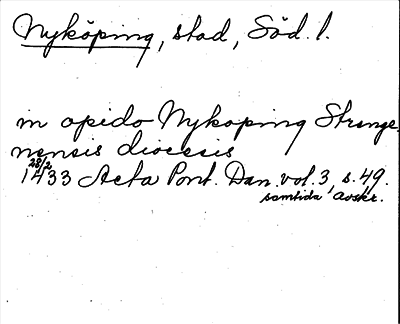 Nyköping, stad, Söd. l.
in opido Nykoping Strenge
nensis diocesis
28/2
1433 Acta Pont. Dan. vol. 3, s. 49.
samtida avskr.